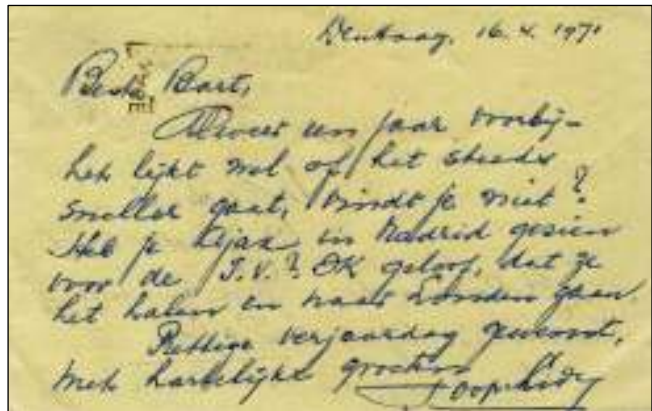 Den Haag, 16.4.1971
Beste Bart,
Alweer een jaar voorbij -
het lijkt wel of het steeds
sneller gaat, vindt je niet?
Heb je Ajax in Madrid gezien
voor de T.V.? Ik geloof, dat ze
het halen en naar Londen gaan.
Prettige verjaardag gewenst,
met hartelijke groeten
Joop